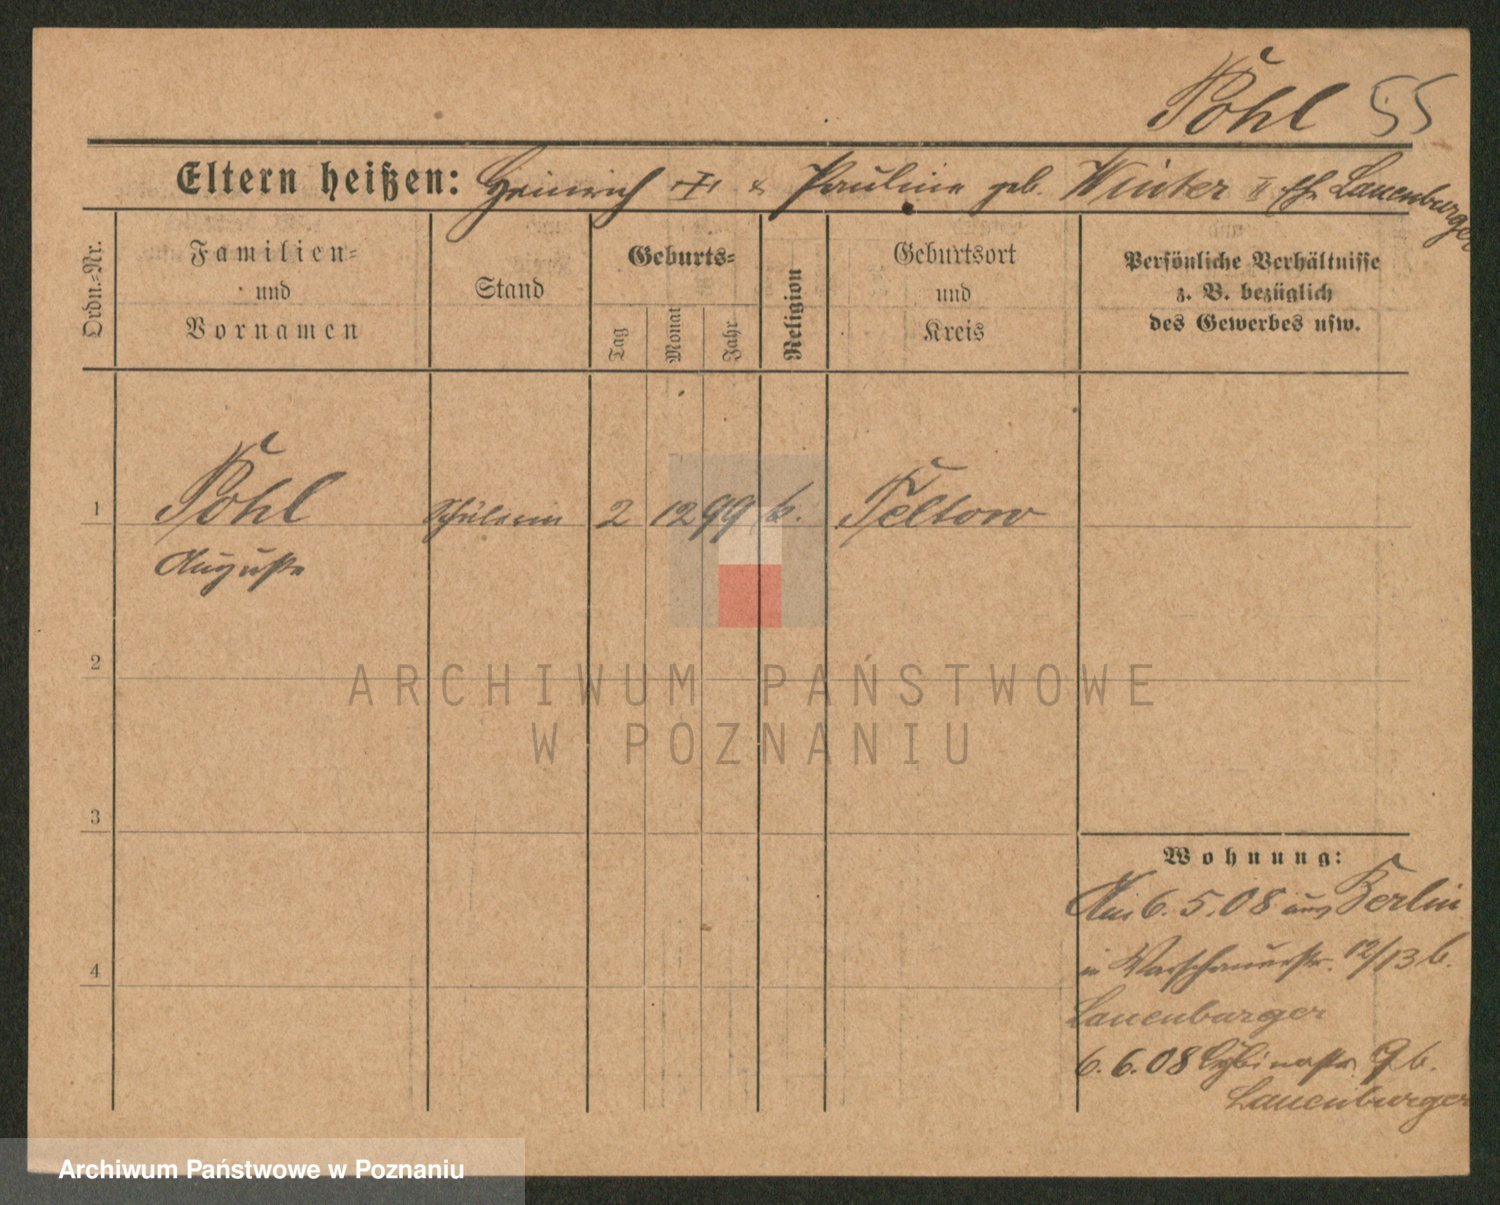 Pohl 55
Eltern heißen: Heinrich + & Pauline geb. Winter II Eh. Lauenburger
Ordn.-Nr.
Familien-
und
Vornamen
Stand
Geburts-
Tag
Monat
Jahr
Religion
Geburtsort
und
Kreis
Persönliche Verhältnisse
z. B. bezüglich
des Gewerbes usw.
1 Pohl Schülerin 2 12 99 k. Teltow
Auguste
2
ARCHIWUM PAŃSTWOWE
W POZNANIU
3
Wohnung:
Am 6. 5. 08 aus Berlin
in Warschauerstr. 12/13 b.
4
Lauenburger
6. 6. 08 Cybinastr. 9 b.
Lauenburger
Archiwum Państwowe w Poznaniu